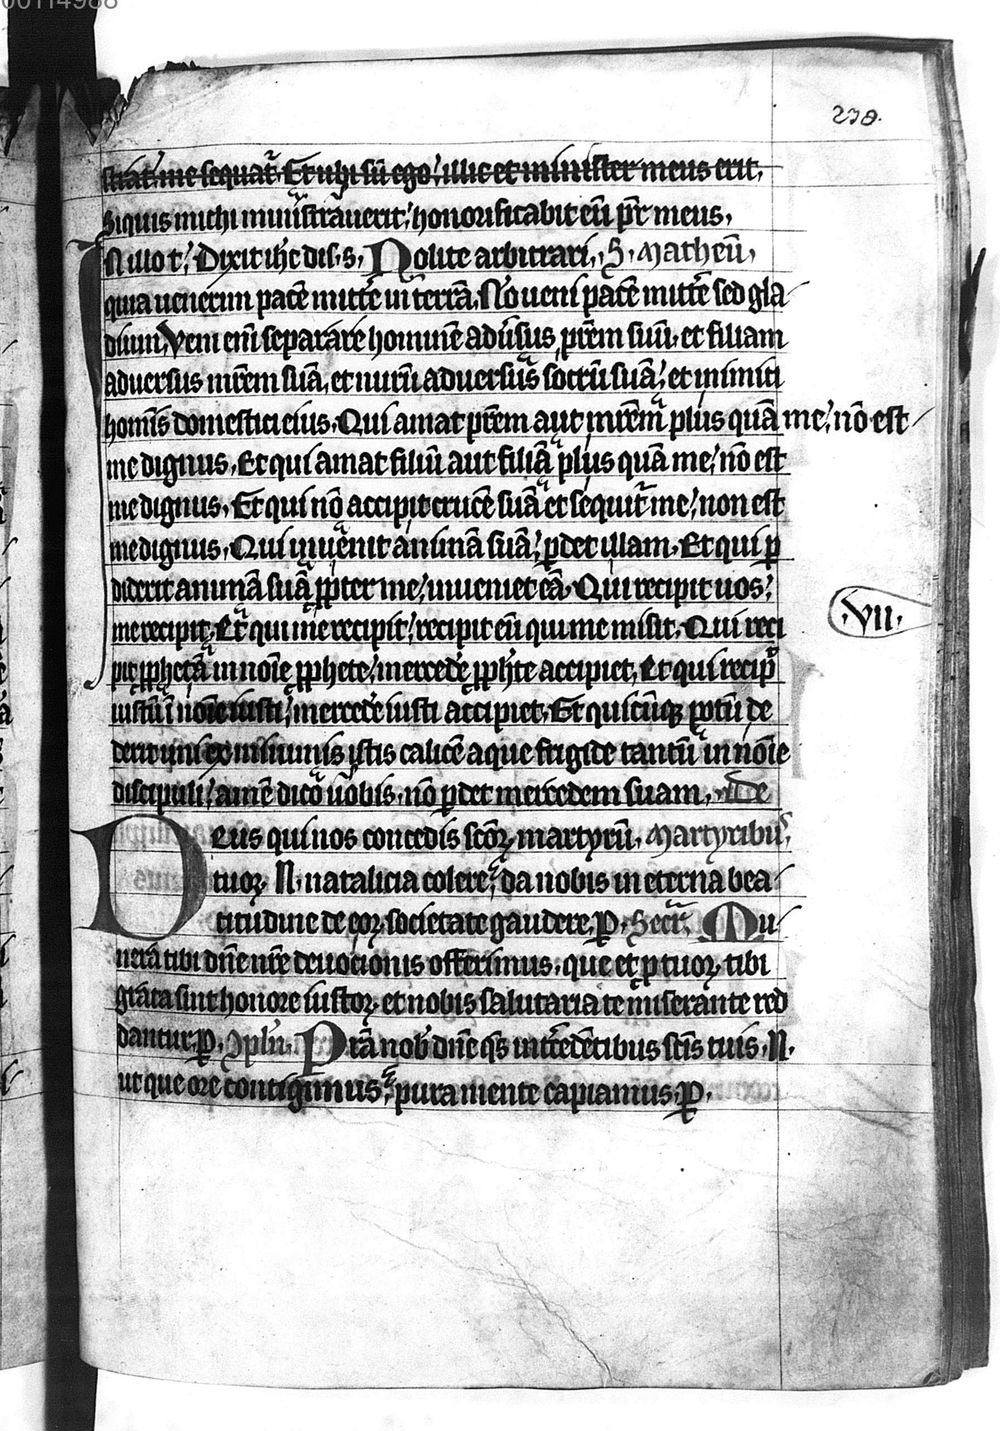 00114988
238.
strat᷑ me sequat᷑. Et ubi sū ego / illic et minister meus erit.
Siquis michi ministrauerit / honorificabit eū pr̄ meus.
In illo t̄. Dixit ih̄c dis. s. Nolite arbitrari. S. Matheū.
quia uenerim pacē mittē in terrā. Nō ueni pacē mittē sed gla
dium. Veni enī separare hominē adūsus pr̄em suū. et filiam
aduersus mr̄em suā. et nurū aduersus socrū suā. et inimici
homīs domestici eius. Qui amat pr̄em aut mr̄em plus quā me / nō est
me dignus. Et qui amat filiū aut filiā plus quā me / nō est
me dignus. Et qui nō accipit crucē suā et sequit᷑ me / non est
me dignus. Qui inuenit animā suā / ꝑdet illam. Et qui ꝑ
diderit animā suā ꝓpter me / inueniet eā. Qui recipit uos /
me recipit. Et qui me recipit / recipit eū qui me misit. Qui reci
pit ꝓphetā in noīe ꝓphete / mercedē ꝓphēte accipiet. Et qui recip̄
iustū ī noīe iusti / mercedē iusti accipiet. Et quicūqꝫ potū de
derit uni ex minimis istis calicē aque frigide tantū in noīe
discipuli / amē dico uobis. nō ꝑdet mercedem suam. De
VII.
Deus qui nos concedis scōꝝ martyrū. Martyribus.
tuoꝝ N. natalicia colere / da nobis in eterna bea
titudine de eoꝝ societate gaudere. P. Secr̄. Mu
nera tibi dn̄e nr̄e deuocionis offerimus. que et ꝑ tuoꝝ tibi
grata sint honore iustoꝝ. et nobis salutaria te miserante red
dantur. P. 9plūn. Pr̄a nob̄ dn̄e qs̄ int̄cedētibus scīs tuis. N.
ut que ore contigimus / pura mente capiamus. P.